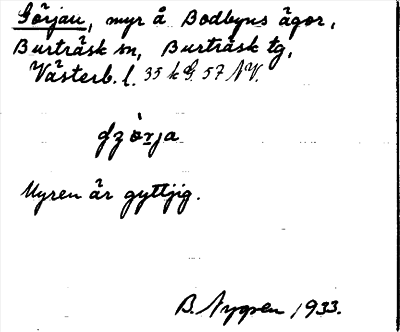 Görjau, myr å Bodbyns ägor,
Burträsk sn, Burträsk tg,
Västerb. l. 35 k G. 57 NV.
Myren är gyttjig.
B. Nygren 1933.